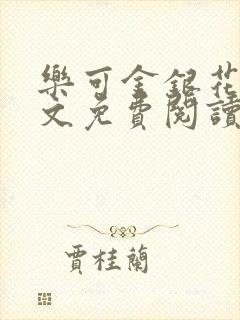 樂可金銀花
文免費閱讀
賈桂蘭